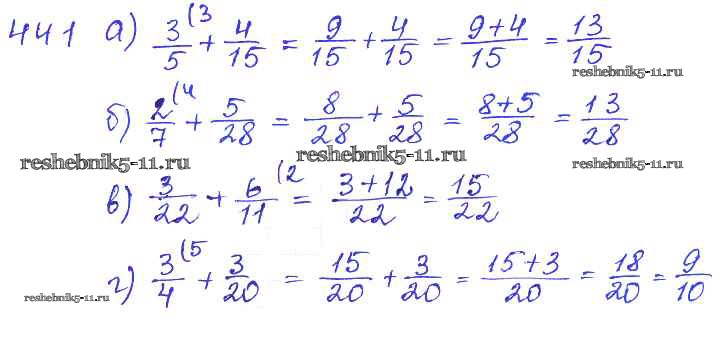 441 а) 3/5 (3 + 4/15 = 9/15 + 4/15 = (9+4)/15 = 13/15
reshebnik5-11.ru
б) 2/7 (4 + 5/28 = 8/28 + 5/28 = (8+5)/28 = 13/28
reshebnik5-11.ru reshebnik5-11.ru reshebnik5-11.ru
в) 3/22 + 6/11 (2 = (3+12)/22 = 15/22
г) 3/4 (5 + 3/20 = 15/20 + 3/20 = (15+3)/20 = 18/20 = 9/10
reshebnik5-11.ru